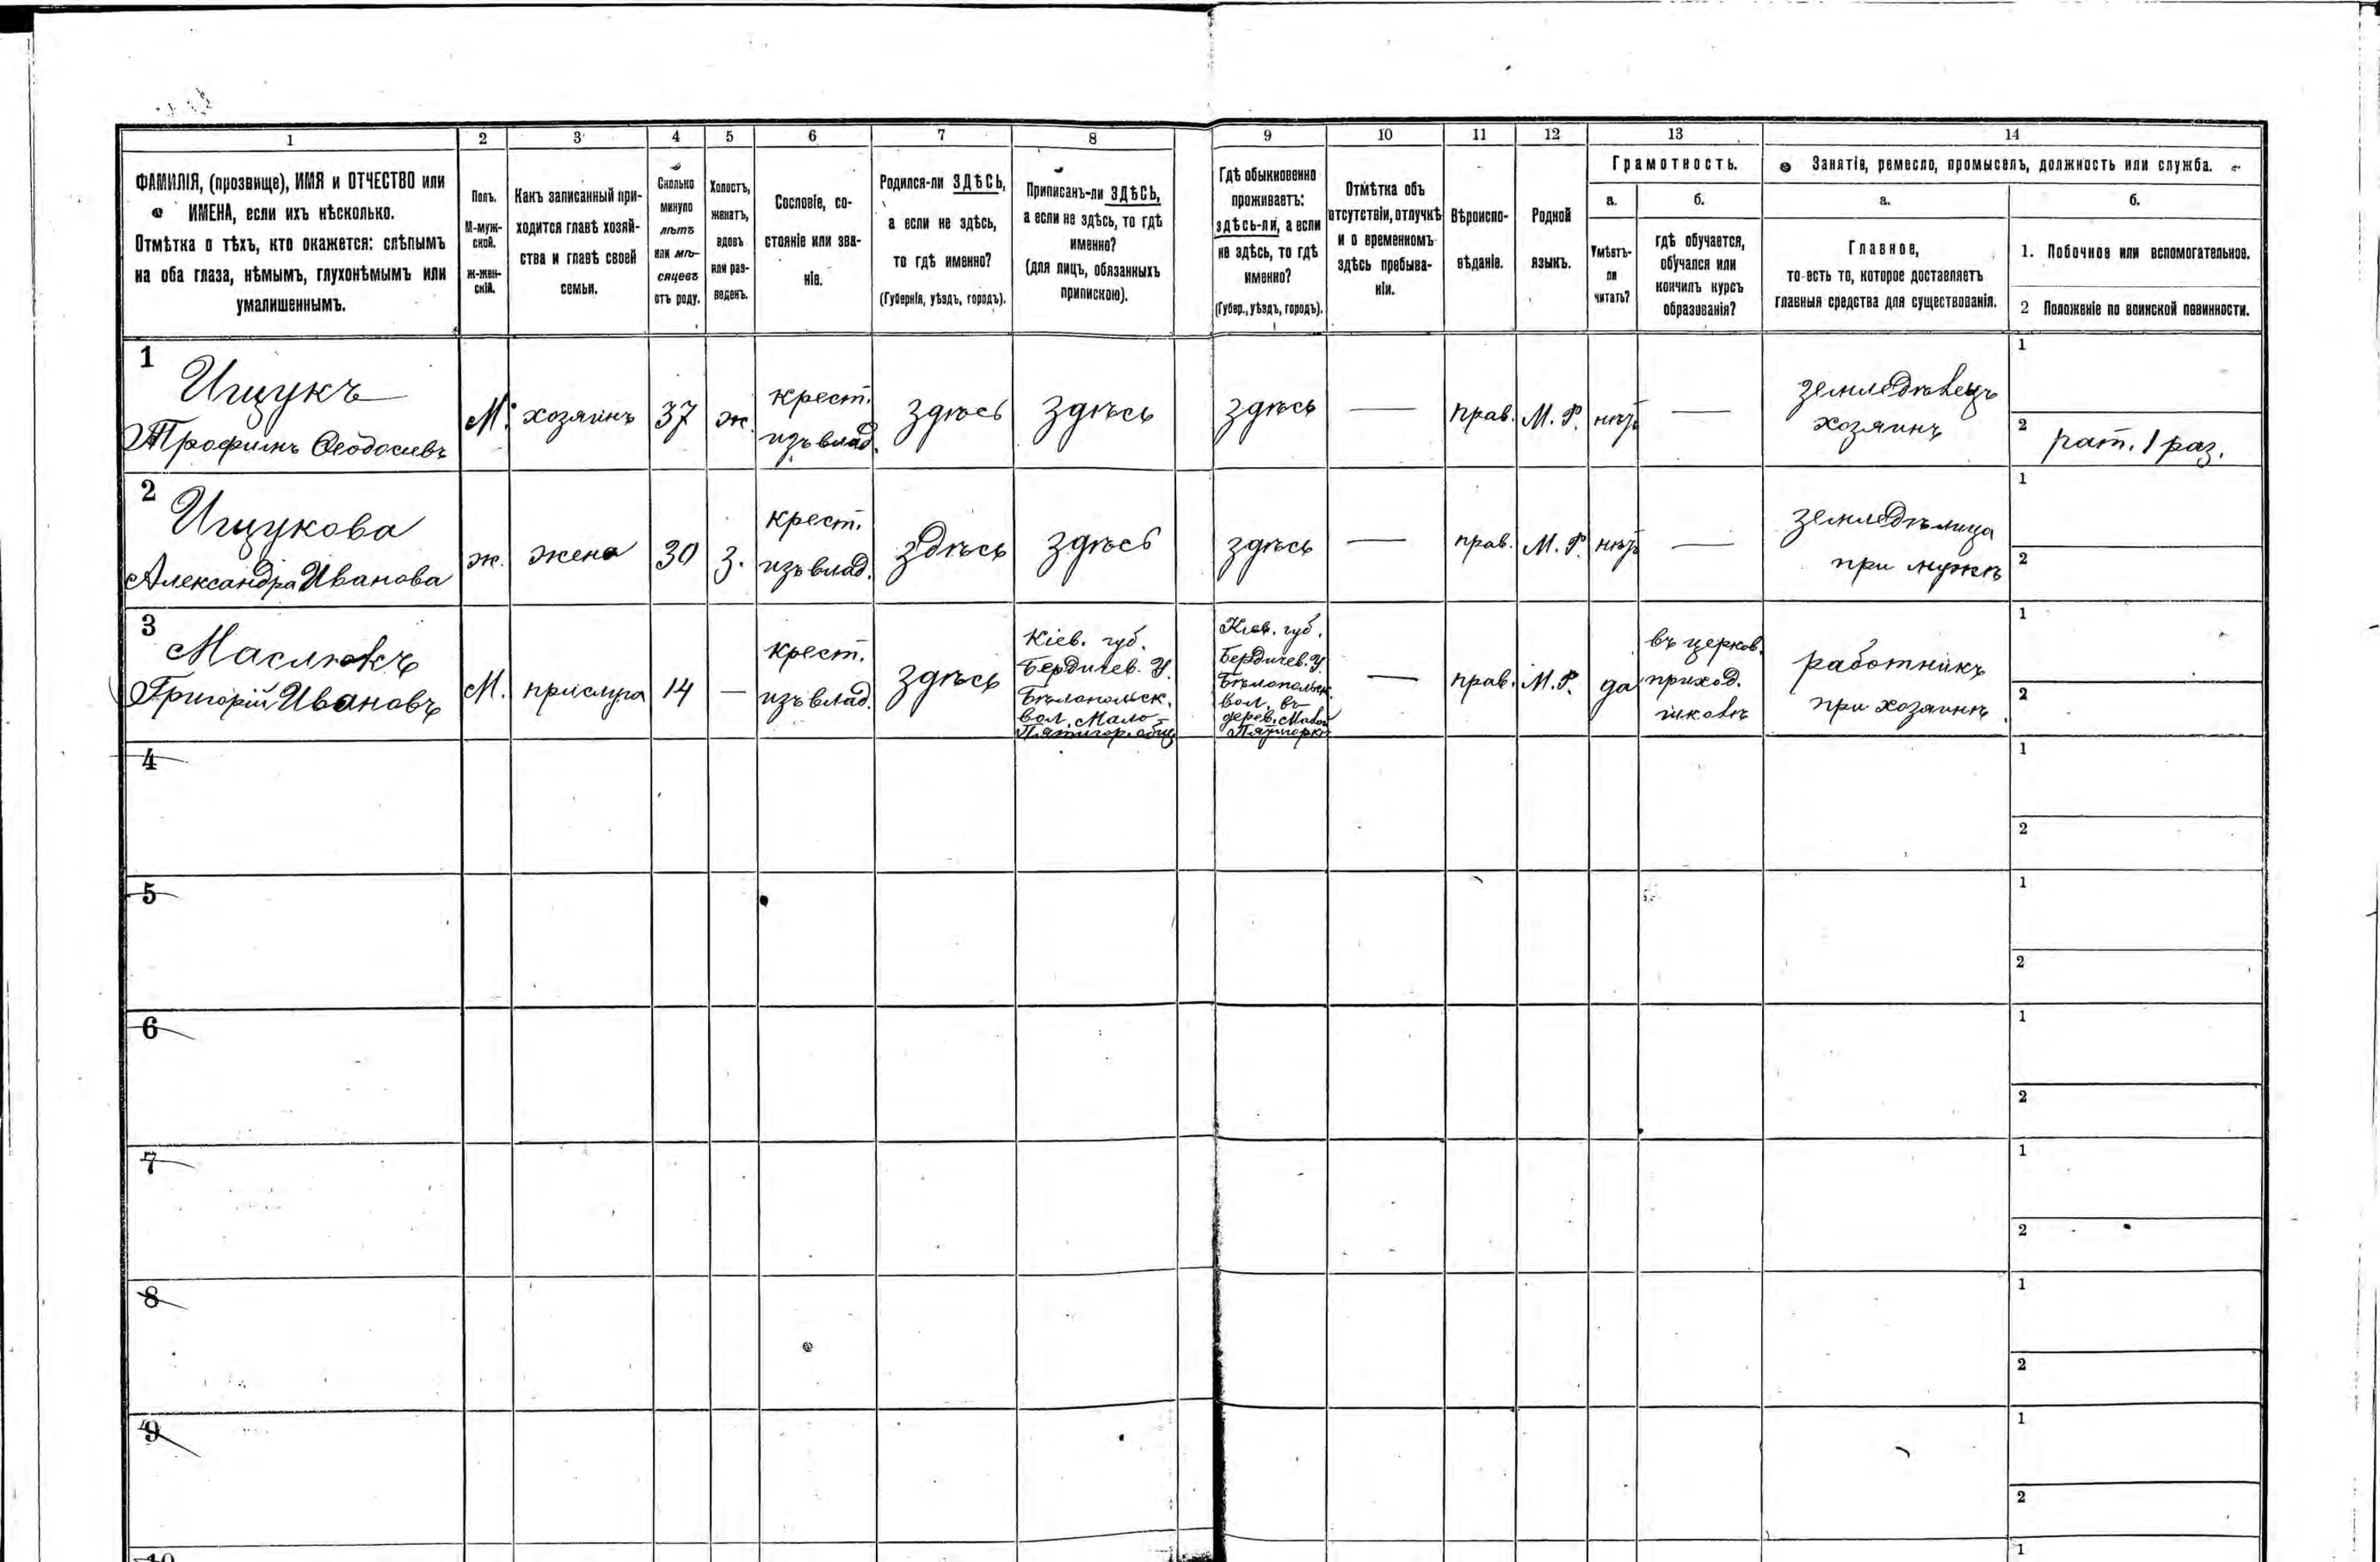 1 2 3 4 5 6 7 8 9 10 11 12 13 14
ФАМИЛІЯ, (прозвище), ИМЯ и ОТЧЕСТВО или
ИМЕНА, если ихъ нѣсколько.
Отмѣтка о тѣхъ, кто окажется: слѣпымъ
на оба глаза, нѣмымъ, глухонѣмымъ или
умалишеннымъ.
Полъ.
М-муж-
ской.
ж-жен-
скій.
Какъ записанный при-
ходится главѣ хозяй-
ства и главѣ своей
семьи.
Сколько
минуло
лѣтъ
или мѣ-
сяцевъ
отъ роду.
Холостъ,
женатъ,
вдовъ
или раз-
веденъ.
Сословіе, со-
стояніе или зва-
ніе.
Родился-ли ЗДѢСЬ,
а если не здѣсь,
то гдѣ именно?
(Губернія, уѣздъ, городъ).
Приписанъ-ли ЗДѢСЬ,
а если не здѣсь, то гдѣ
именно?
(для лицъ, обязанныхъ
припискою).
Гдѣ обыкновенно
проживаетъ:
здѣсь-ли, а если
не здѣсь, то гдѣ
именно?
(Губер., уѣздъ, городъ).
Отмѣтка объ
отсутствіи, отлучкѣ
и о временномъ
здѣсь пребыва-
ніи.
Вѣроиспо-
вѣданіе.
Родной
языкъ.
Грамотность.
а.
Умѣетъ-
ли
читать?
б.
гдѣ обучается,
обучался или
кончилъ курсъ
образованія?
Занятіе, ремесло, промыселъ, должность или служба.
а.
Главное,
то-есть то, которое доставляетъ
главныя средства для существованія.
б.
1. Побочное или вспомогательное.
2 Положеніе по воинской повинности.
1
Ищукъ
Трофимъ Ѳеодосіевъ
М.
хозяинъ
37
ж.
крест.
изъ влад.
здѣсь
здѣсь
здѣсь
—
прав.
М. Р.
нѣтъ
—
земледѣлецъ
хозяинъ
1
2
рат. 1 раз.
2
Ищукова
Александра Иванова
ж.
жена
30
з.
крест.
изъ влад.
здѣсь
здѣсь
здѣсь
—
прав.
М. Р.
нѣтъ
—
земледѣлица
при мужѣ
1
2
3
Маслюкъ
Григорій Ивановъ
М.
прислуга
14
—
крест.
изъ влад.
здѣсь
Кіев. губ.
Бердичев. У.
Бѣлопольск.
вол. Мало-
Пятигор. общ
Кіев. губ.
Бердичев. У.
Бѣлопольск.
вол. въ
дерев. Малой
Пятигоркѣ
—
прав.
М. Р.
да
въ церков.
приход.
школѣ
работникъ
при хозяинѣ
1
2
4
1
2
5
1
2
6
1
2
7
1
2
8
1
2
9
1
2
10
1